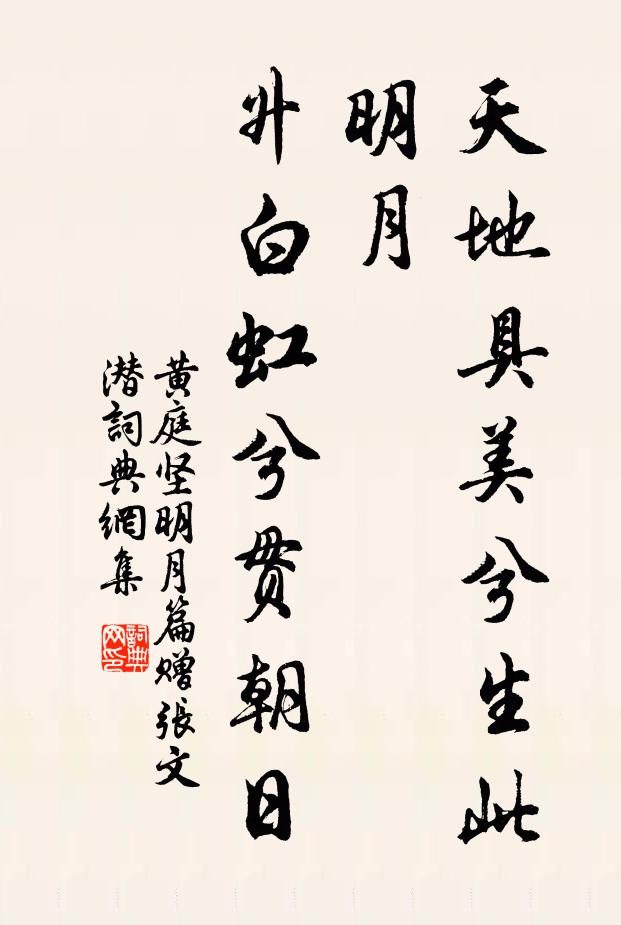 天地具美兮生此
明月
升白虹兮贯朝日
黄庭坚明月篇赠張文
潜詞典網集
詞典
网印